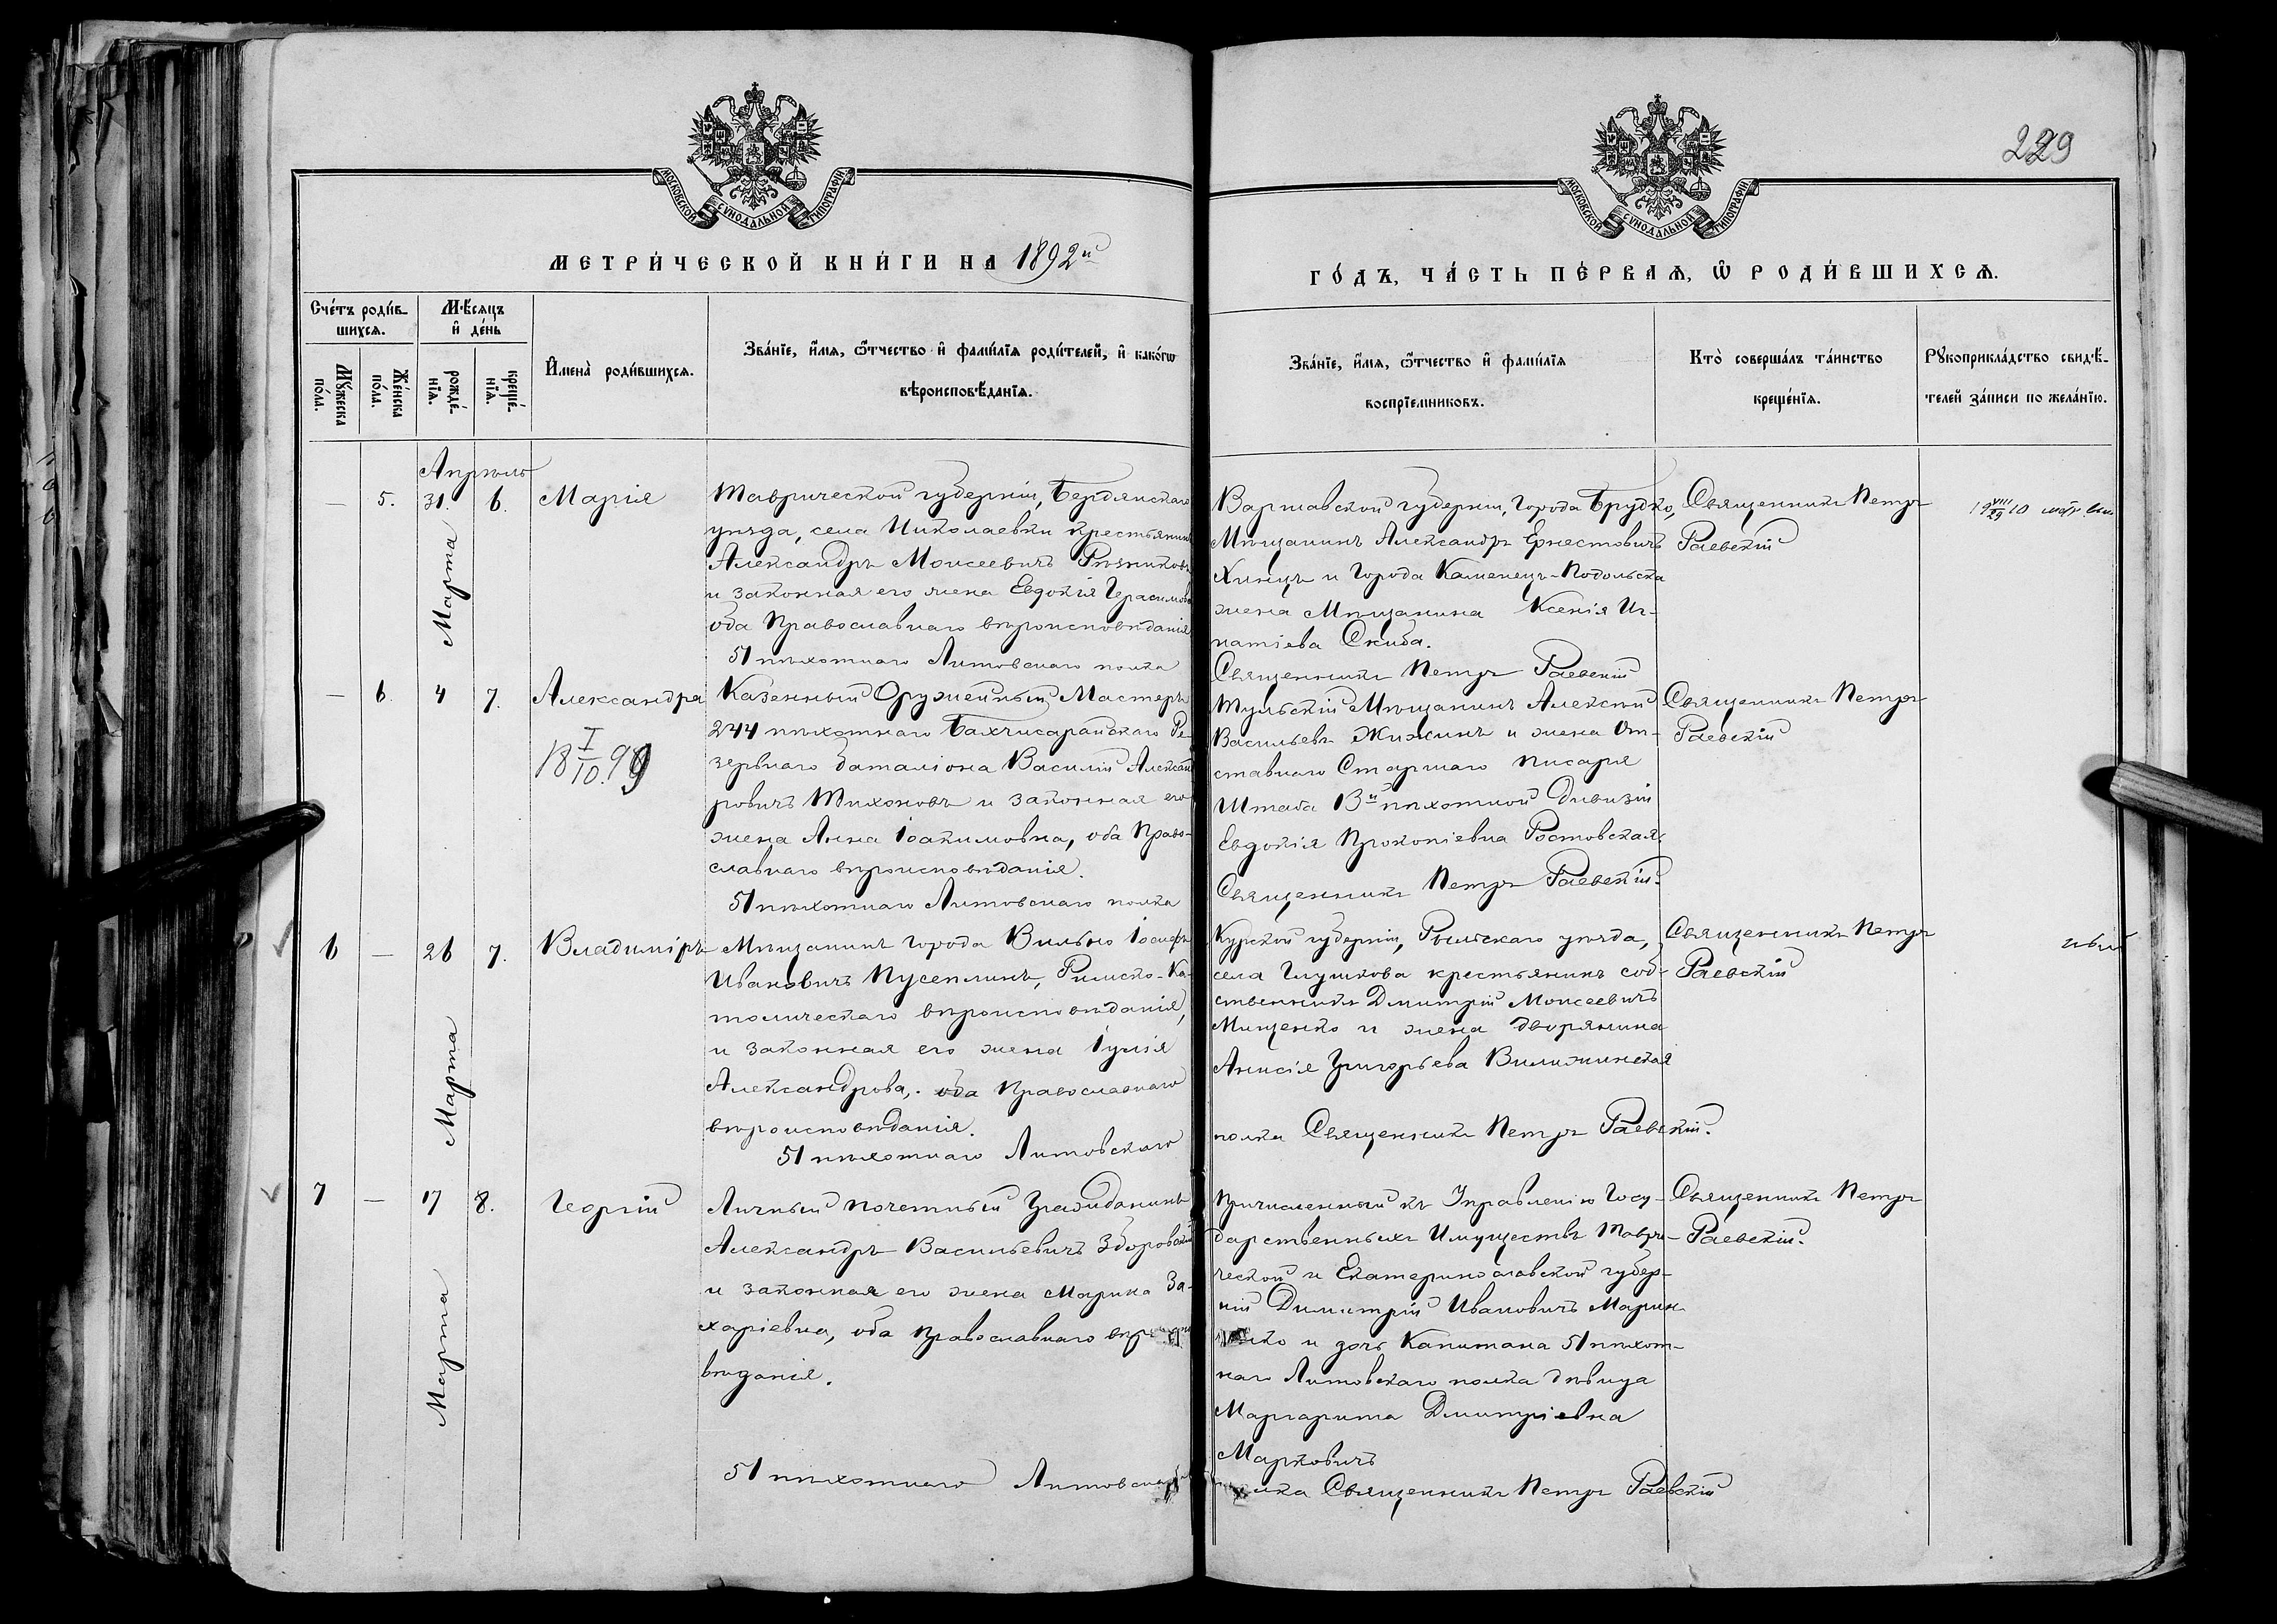 229
МОСКОВСКОЙ СУНОДАЛЬНОЙ ТИПОГРАФІИ
МОСКОВСКОЙ СУНОДАЛЬНОЙ ТИПОГРАФІИ
МЕТРИ́ЧЕСКОЙ КНИ́ГИ НА 1892й
ГО́ДЪ, ЧА́СТЬ ПЕ́РВАѦ, Ѿ РОДИ́ВШИХСѦ.
Сче́тъ роди́в-
шихсѧ.
Мꙋ́жеска
по́ла.
Же́нска
по́ла.
Мѣ́сяцъ
и҆ де́нь
рожде́-
нїѧ.
креще́-
нїѧ.
И҆мена̀ роди́вшихсѧ.
Зва́нїе, и҆́мѧ, ѻ҆́тчество и҆ фами́лїѧ роди́телей, и҆ како́гѡ
вѣроисповѣ́данїѧ.
Зва́нїе, и҆́мѧ, ѻ҆́тчество и҆ фами́лїѧ
воспрїе́мниковъ.
Кто̀ соверша́лъ та́инство
креще́нїѧ.
Рꙋкоприкла́дство свидѣ́-
телей за́писи по жела́нїю.
Апрѣль
— 5. 31. 6. Марія
Марта
Таврической губерніи, Бердянскаго
уѣзда, села Николаевки крестьянинъ
Александръ Моисеевичъ Рѣзниковъ
и законная его жена Евдокія Герасимова
оба Православнаго вѣроисповѣданія
51 пѣхотнаго Литовскаго полка
Варшавской губерніи, города Брудно,
Мѣщанинъ Александръ Ернестовичъ
Хинцъ и города Каменецъ-Подольска
жена Мѣщанина Ксенія Иг-
натіева Скиба.
Священникъ Петръ Раевскій
Священникъ Петръ
Раевскій
19 VIII/29 10
— 6 4 7. Александра
18 I/10. 99
Казенный Оружейный Мастеръ
244 пѣхотнаго Бахчисарайскаго Ре-
зервнаго баталіона Василій Александ
ровичъ Тихоновъ и законная его
жена Анна Іоакимовна, оба Право-
славнаго вѣроисповѣданія.
51 пѣхотнаго Литовскаго полка
Тульскій Мѣщанинъ Алексѣй
Васильевъ Жижинъ и жена От-
ставнаго Старшаго писаря
Штаба 13й пѣхотной Дивизіи
Евдокія Прокопіевна Ростовская.
Священникъ Петръ Раевскій.
Священникъ Петръ
Раевскій
6 — 26 7. Владиміръ
Марта
Мѣщанинъ города Вильно Іосифъ
Ивановичъ Пусеплинъ, Римско-Ка-
толическаго вѣроисповѣданія,
и законная его жена Іулія
Александрова, оба Православнаго
вѣроисповѣданія.
51 пѣхотнаго Литовскаго
Курской губерніи, Рыльскаго уѣзда,
села Глушкова крестьянинъ соб-
ственникъ Дмитрій Моисеевичъ
Мищенко и жена дворянина
Анисія Григорьева Вилижинская
полка Священникъ Петръ Раевскій.
Священникъ Петръ
Раевскій
7 — 17 8. Георгій
Марта
Личный почетный Гражданинъ
Александръ Васильевичъ Зборовскій
и законная его жена Марина За-
харіевна, оба Православнаго вѣроиспо
вѣданія.
51 пѣхотнаго Литовскаго
Причисленный къ Управленію Госу-
дарственныхъ Имуществъ Таври-
ческой и Екатеринославской губер-
ніи Димитрій Ивановичъ Марин
ко и дочь Капитана 51 пѣхот-
наго Литовскаго полка дѣвица
Маргарита Дмитріевна
Марковичъ
полка Священникъ Петръ Раевскій
Священникъ Петръ
Раевскій.